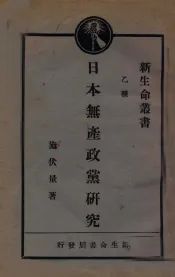 新生命叢書
乙種
日本無產政黨研究
施伏量著
新生命書局發行